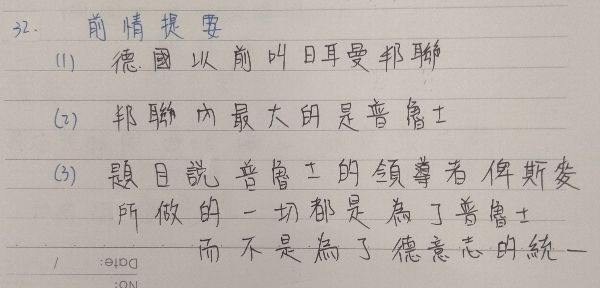 32. 前情提要
(1) 德國以前叫日耳曼邦聯
(2) 邦聯內最大的是普魯士
(3) 題目說普魯士的領導者俾斯麥
所做的一切都是為了普魯士
而不是為了德意志的統一
Date: /
No: